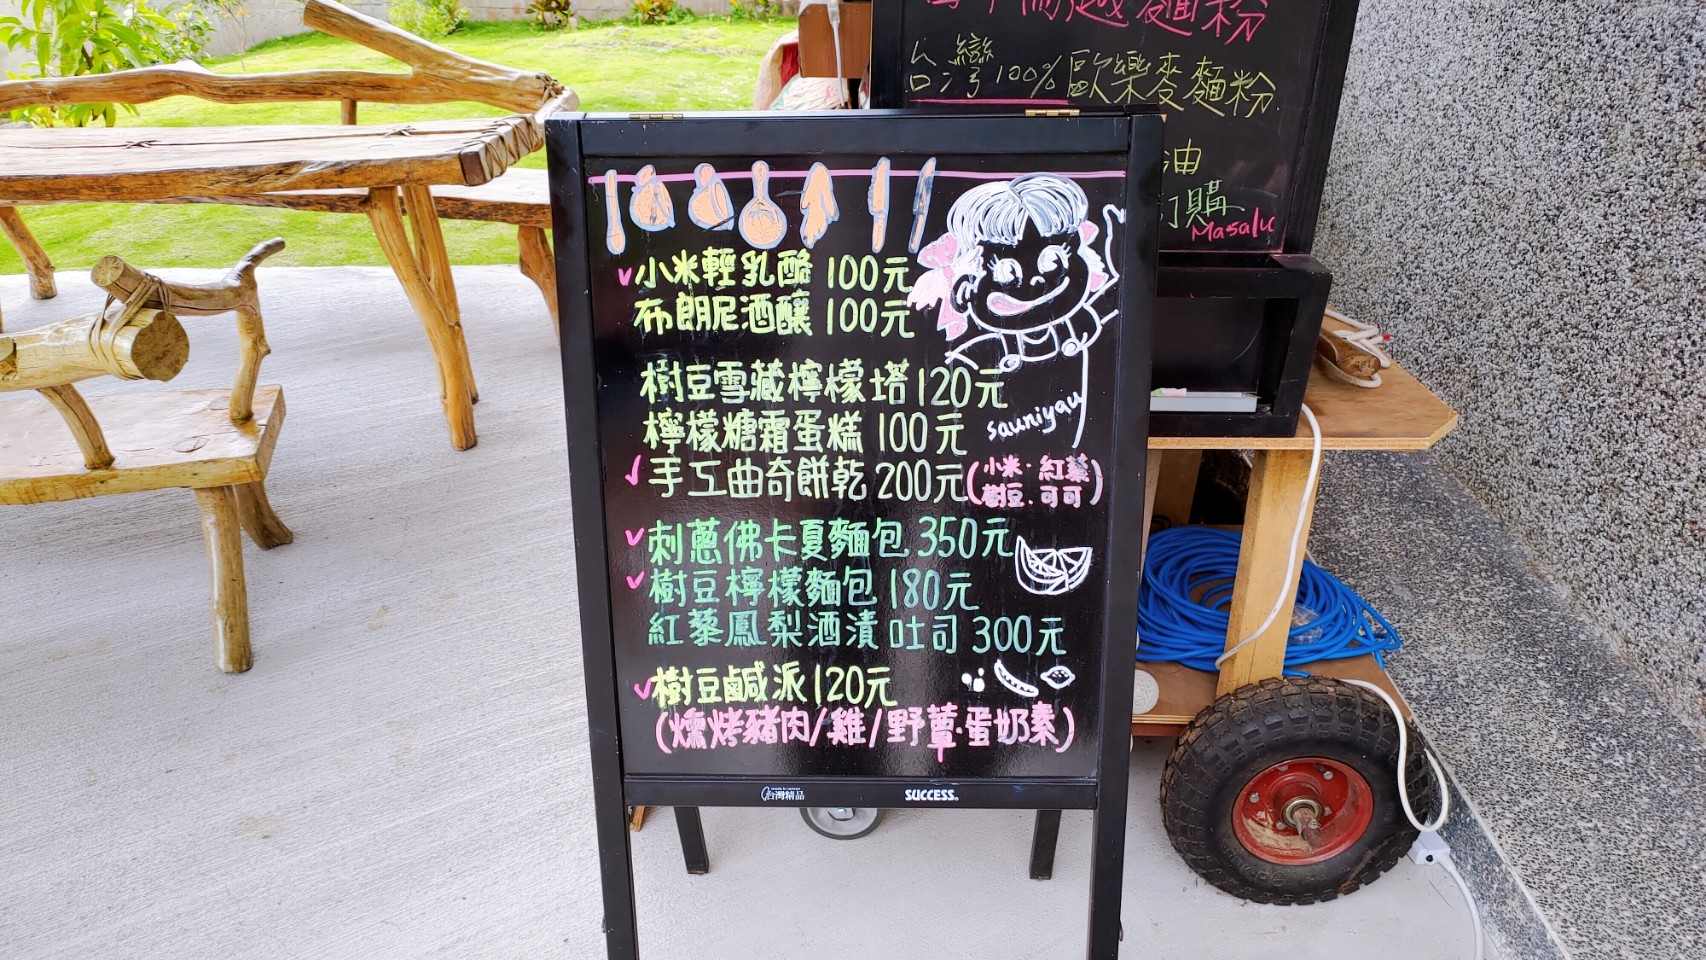 台灣100%歐樂麥麵粉
油
訂購
Masalu
小米輕乳酪 100元
布朗尼酒釀 100元
樹豆雪藏檸檬塔 120元
檸檬糖霜蛋糕 100元
手工曲奇餅乾 200元(小米·紅藜
樹豆.可可)
刺蔥佛卡夏麵包 350元
樹豆檸檬麵包 180元
紅藜鳳梨酒漬吐司 300元
樹豆鹹派 120元
(燻烤豬肉/雞/野蕈·蛋奶素)
sauniyau
台灣精品
SUCCESS